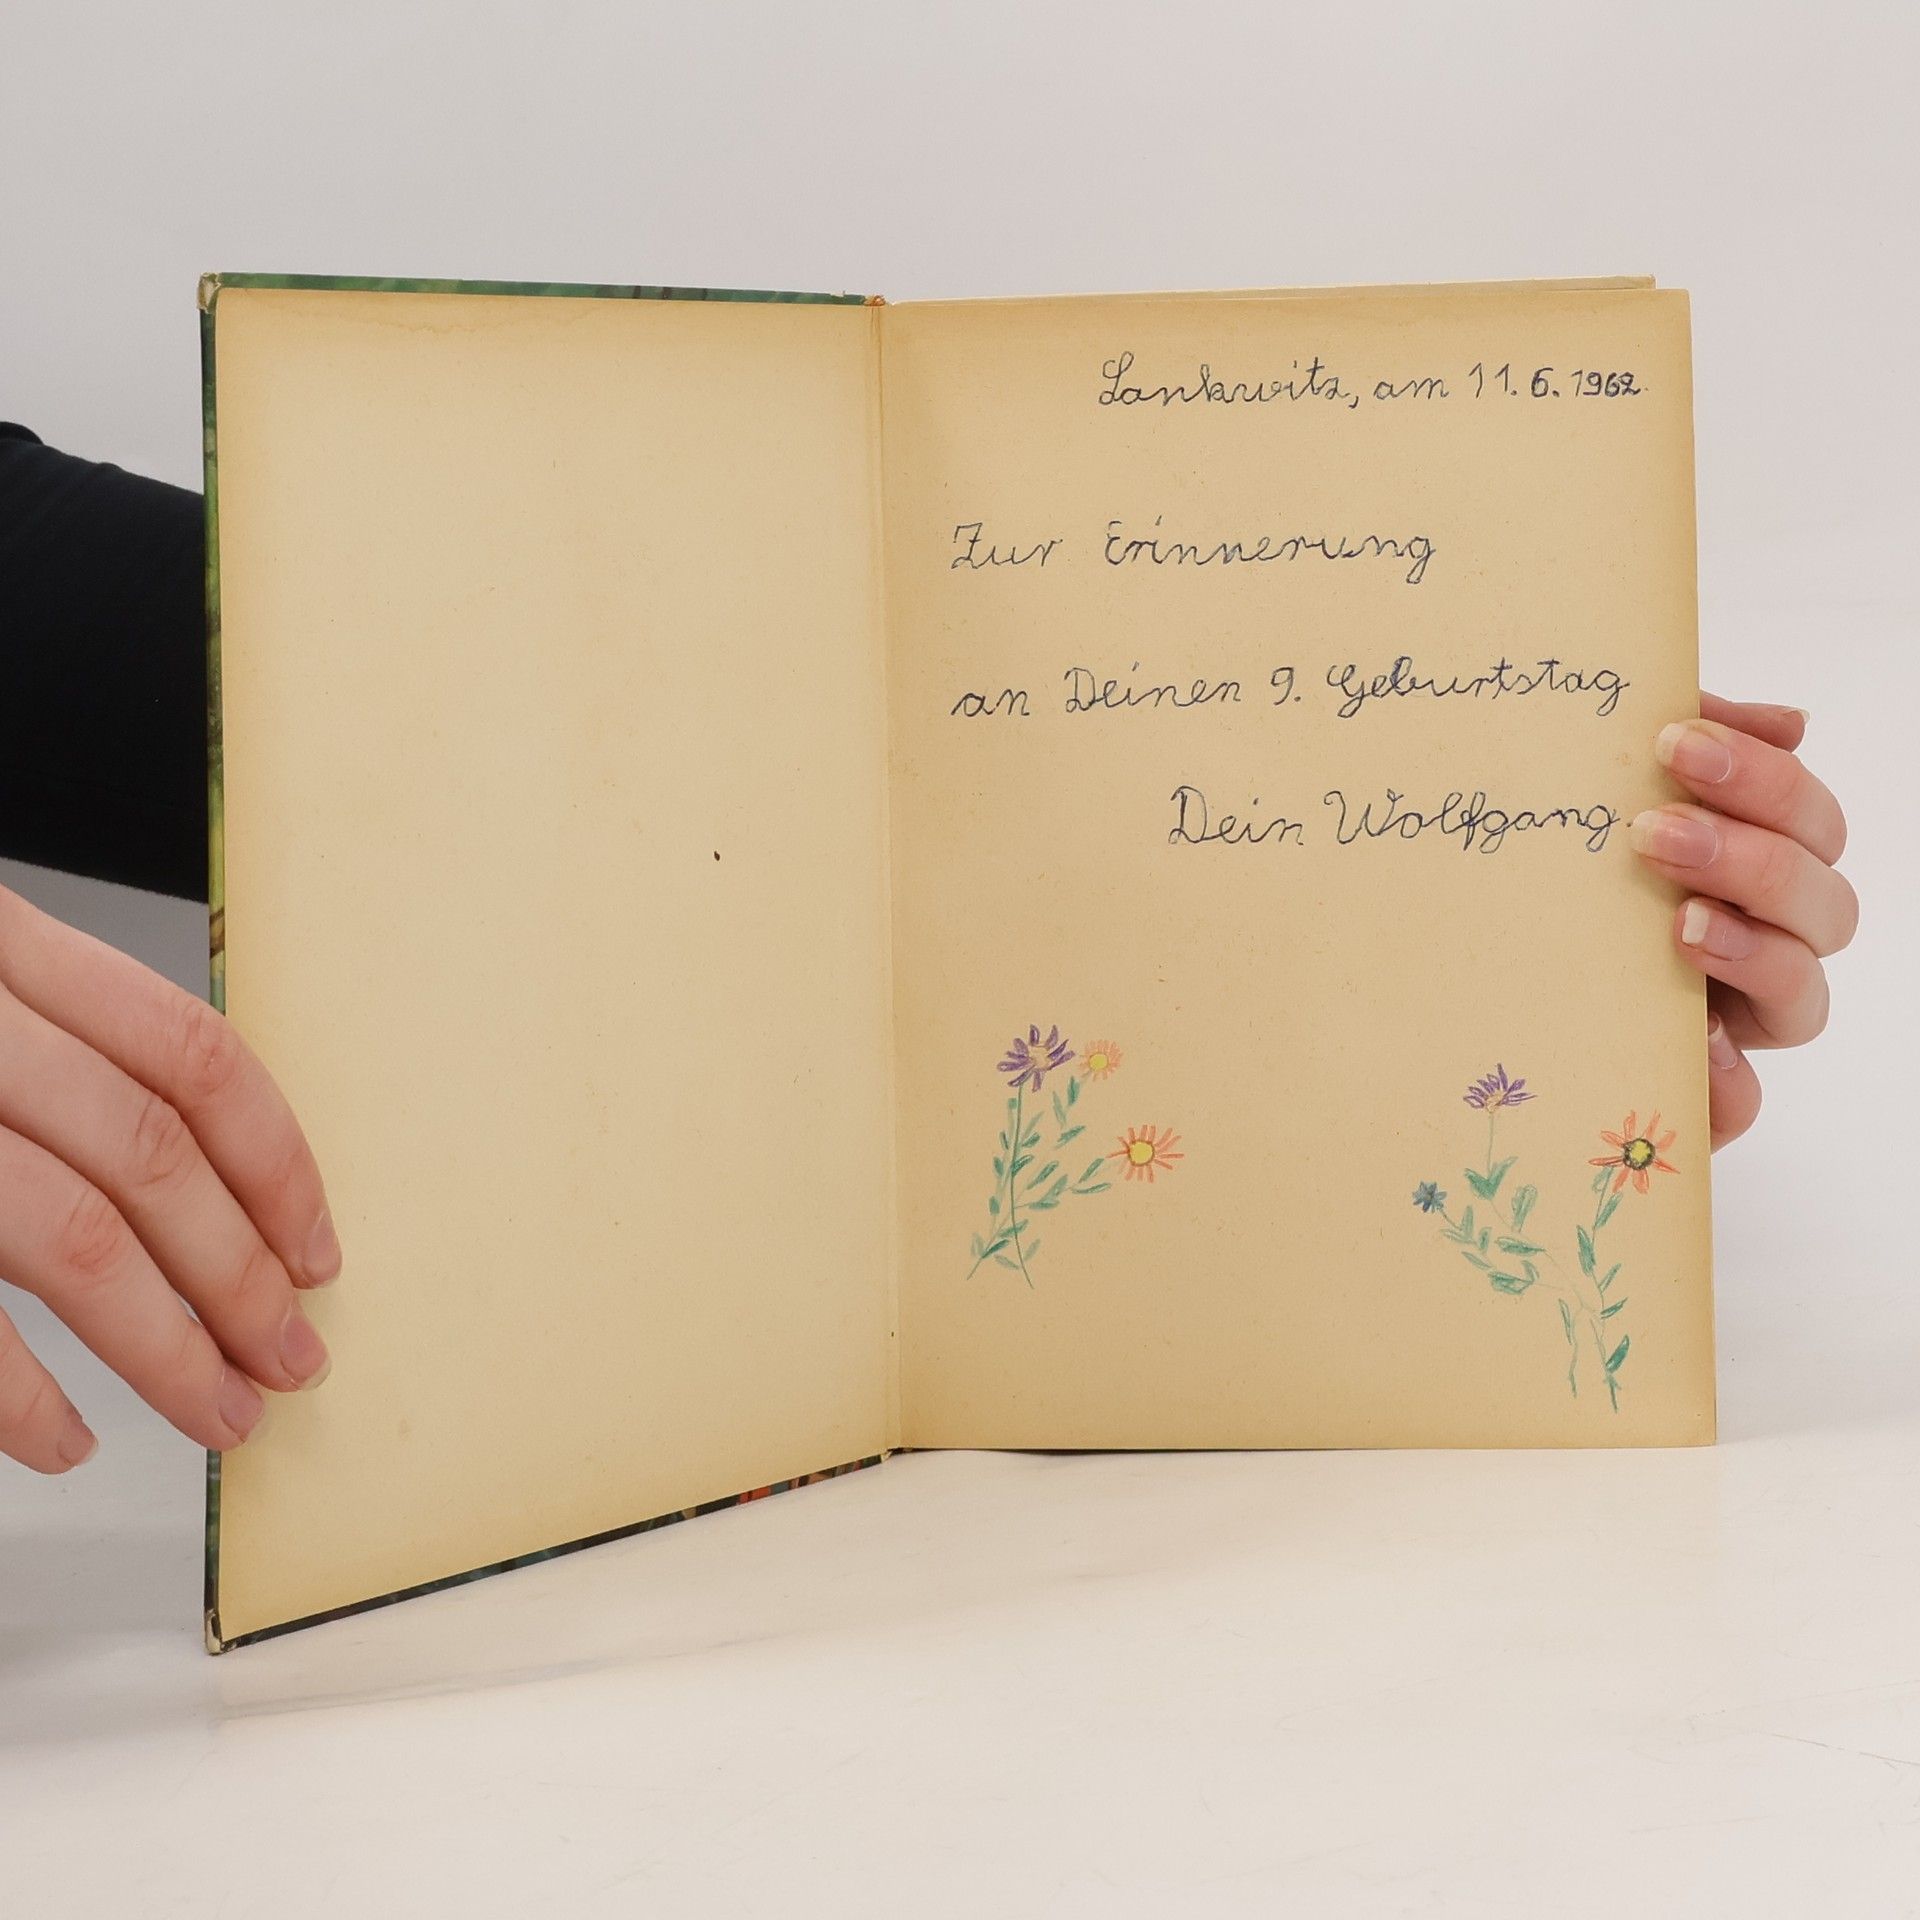 Lankwitz, am 11. 6. 1962.
Zur Erinnerung
an Deinen 9. Geburtstag
Dein Wolfgang.